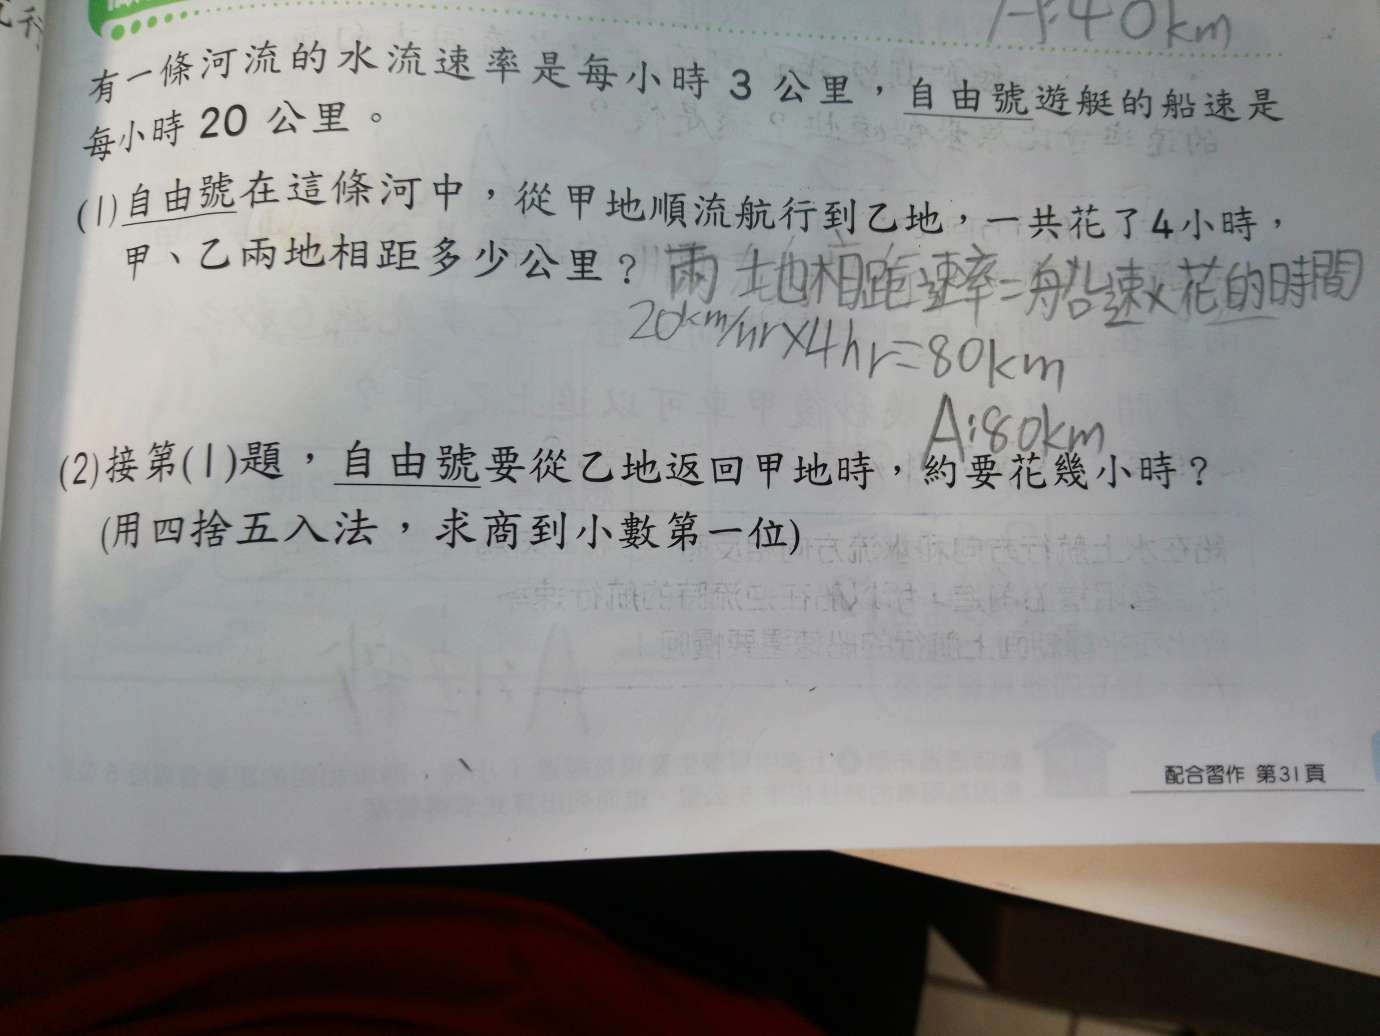 A:40km
有一條河流的水流速率是每小時 3 公里，自由號遊艇的船速是
每小時 20 公里。
(1)自由號在這條河中，從甲地順流航行到乙地，一共花了4小時，
甲、乙兩地相距多少公里？ 兩地相距速率=船速×花的時間
20km/hr×4hr=80km
A:80km
(2)接第(1)題，自由號要從乙地返回甲地時，約要花幾小時？
(用四捨五入法，求商到小數第一位)
配合習作 第31頁